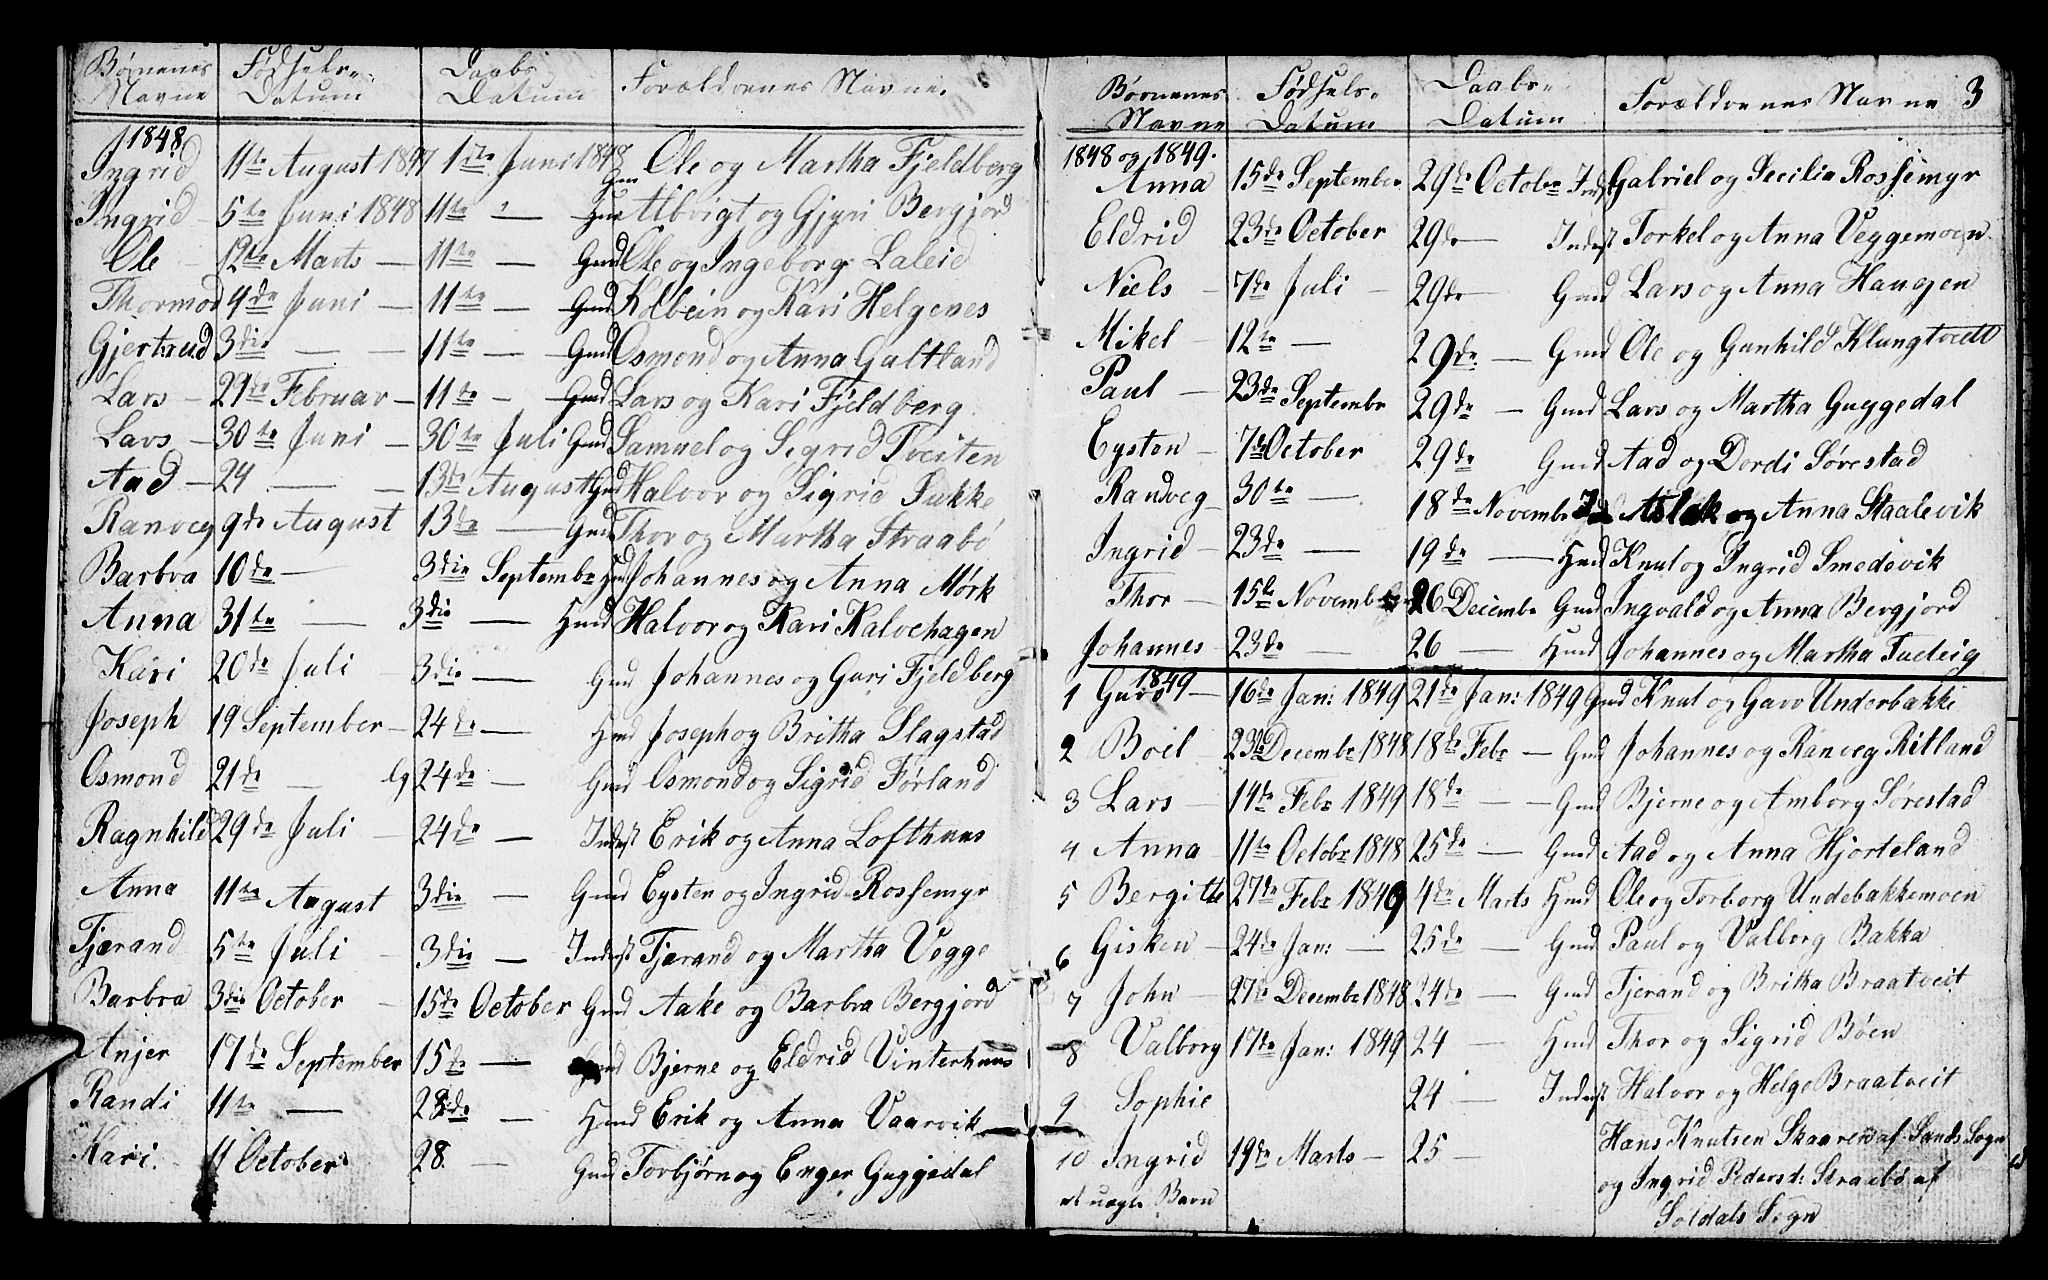 Børnenes Navne | Fødsels- Datum | Daabs- Datum | Forældrenes Navne.
1848
Ingrid | 11te August 1847 | 1ste Juni 1848 | Gmd Ole og Martha Fjeldberg
Ingrid | 5te Juni 1848 | 11te " — | Gmd Albrigt og Gjyri Bergjord
Ole | 12te Marts — | 11te — | Gmd Ole og Ingeborg Laleid
Thormod | 4de Juni — | 11te — | Gmd Kolbein og Kari Helgenes
Gjertrud | 3die — — | 11te — | Gmd Osmond og Anna Galtland
Lars — | 21de Februar — | 11te — | Gmd Lars og Kari Fjeldberg
Lars — | 30te Juni — | 30te Juli | Gmd Samuel og Sigrid Tveiten
Aad — | 24 — — | 13de August | Gmd Halvor og Sigrid Sukke
Ranveg | 9de August | 13de — | Gmd Thor og Martha Straabø
Barbra | 10de — | 3die Septembr | Hmd Johannes og Anna Mørk
Anna | 31te — | 3die — | Hmd Halvor og Kari Kalvehagen
Kari | 20de Juli | 3die — | Gmd Johannes og Guri Fjeldberg
Joseph | 19 September — | 24de — | Hmd Joseph og Britha Slagstad
Osmond | 21de — | 24de — | Gmd Osmond og Sigrid Førland
Ragnhild | 29de Juli — | 24de — | Inderst Erik og Anna Lofthuus
Anna | 11te August | 3die — | Gmd Eysten og Ingrid Rossemyr
Tjerand | 5te Juli — | 3die — | Inderst Tjerand og Martha Vegge
Barbra | 3die October — | 15de October | Gmd Aake og Barbra Bergjord
Anjer | 17de September | 15de — | Gmd Bjerne og Eldrid Vinterhuus
Randi | 11te — | 28de — | Hmd Erik og Anna Vaarvik
Kari. | 11 October | 28 — | Gmd Torbjørn og Enger Guggedal
Børnenes Navne | Fødsels- Datum | Daabs- Datum | Forældrenes Navne 3
1848 og 1849.
Anna | 15de September | 29de Octobr | Indst Gabriel og Secilia Rossemyr
Eldrid | 23de October | 29de — | Inderst Torkel og Anna Veggemoen
Niels — | 7de Juli — | 29de — | Gmd Lars og Anna Haugen
Mikel | 12te — | 29de — | Gmd Ole og Gunhild Klungtveett
Paul — | 23de Septembr | 29de — | Gmd Lars og Martha Guggedal
Eysten — | 7de October | 29de | Gmd Aad og Dordi Sørestad
Randveg | 30te — | 18de Novembr | Aslak og Anna Staalevik
Ingrid — | 23de — | 19de — | Hmd Knut og Ingrid Smedsvik
Thor — | 15de November | 26 Decembr | Gmd Ingvald og Anna Bergjord
Johannes | 23de — | 26 — | Hmd Johannes og Martha Tueteig
1849
1 Guro — | 16de Jan: 1849 | 21de Jan: 1849 | Gmd Knut og Gavo Underbakke
2 Boel | 23de Decembr 1848 | 18de Febr — | Gmd Johannes og Ranveg Ritland
3 Lars — | 14de Febr 1849 | 18de — | Gmd Bjerne og Amborg Sørestad
4 Anna | 11te Octobr 1848 | 25de — | Gmd Aad og Anna Hjorteland
5 Bergitte | 27de Febr 1849 | 4de Marts | Hmd Ole og Torborg Undebakkemoen
6 Gisken — | 24de Jan: — | 25de — | Gmd Paul og Valborg Bakka
7 John — | 27de Decembr 1848 | 24de — | Gmd Tjerand og Britha Braatveit
8 Valborg | 17de Jan: 1849 | 24 — | Hmd Thor og Sigrid Bøen
9 Sophie | 24 — | Inderst Halvor og Helge Braatveit
10 Ingrid | 19de Marts — | 25 — | Hans Knutsen Skaaren af Sands Sogn
et uægte Barn | og Ingrid Pedersd: Straabø af
Soldals Sogn